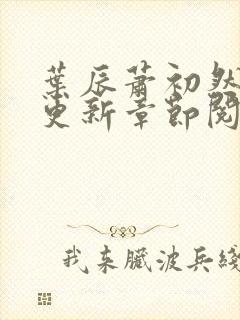 葉辰蕭初然
更新章節閱
我来臟波兵綫